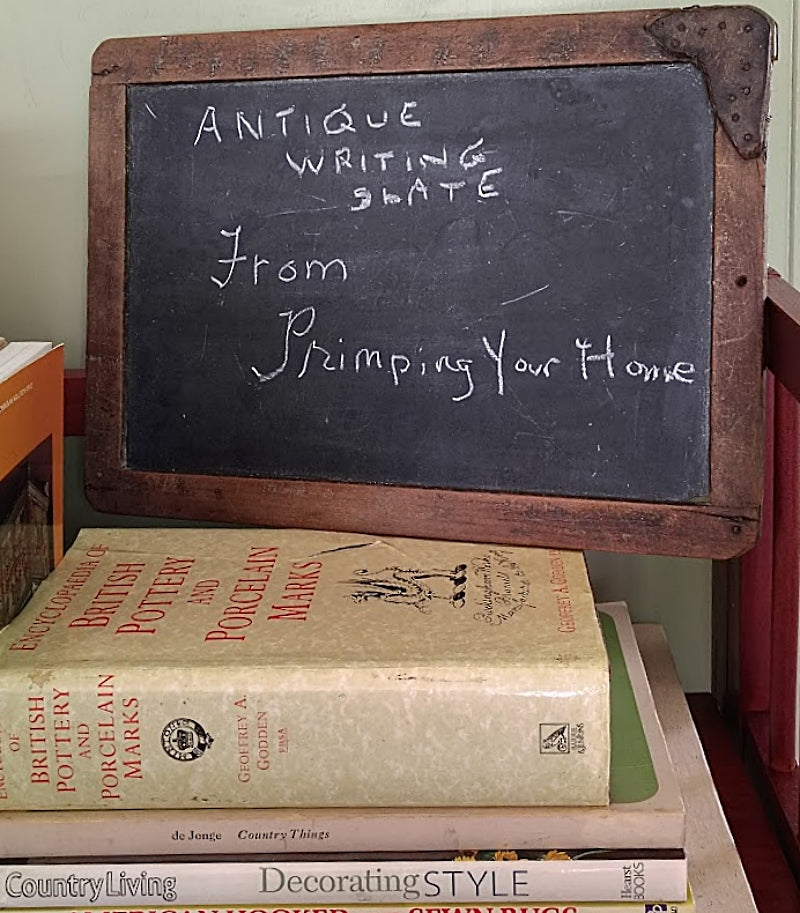 ANTIQUE
WRITING
SLATE
From
Primping Your Home
ENCYCLOPAEDIA OF
BRITISH
POTTERY
AND
PORCELAIN
MARKS
GEOFFREY A.
OF
BRITISH
POTTERY
AND
PORCELAIN
MARKS
GEOFFREY A.
GODDEN
FRSA
de Jonge Country Things
Country Living Decorating STYLE Hearst
BOOKS
AMERICAN HOOKED SEWN RUGS